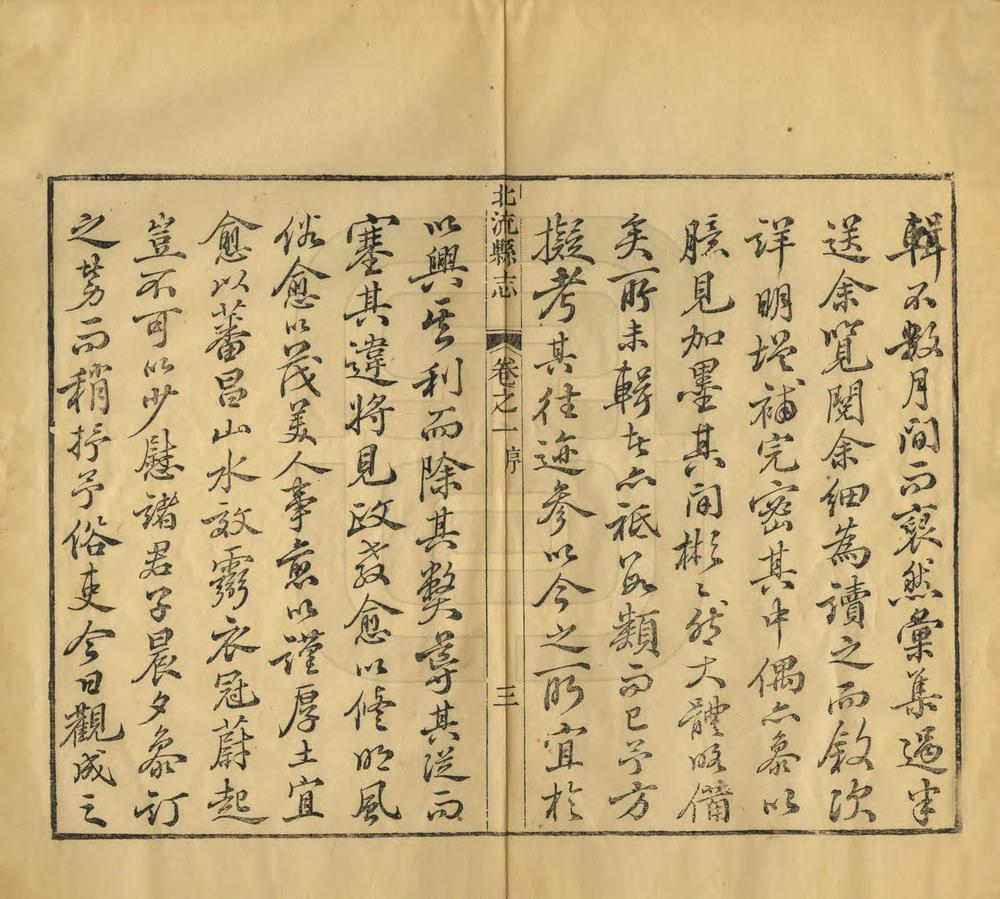 輯不數月間而裒然彙集過半
送余覽閱余細為讀之而敘次
詳明增補完密其中偶亦參以
臆見加墨其間彬彬然大體略備
矣所未輯者亦祗數類而已予方
擬考其往迹參以今之所宜於
北流縣志
卷之一
序
三
以興其利而除其弊導其從而
塞其違將見政教愈以修明風
俗愈以茂美人事愈以謹厚土宜
愈以蕃昌山水效靈衣冠蔚起
豈不可以少慰諸君子晨夕參訂
之勞而稍抒予俗吏今日觀成之